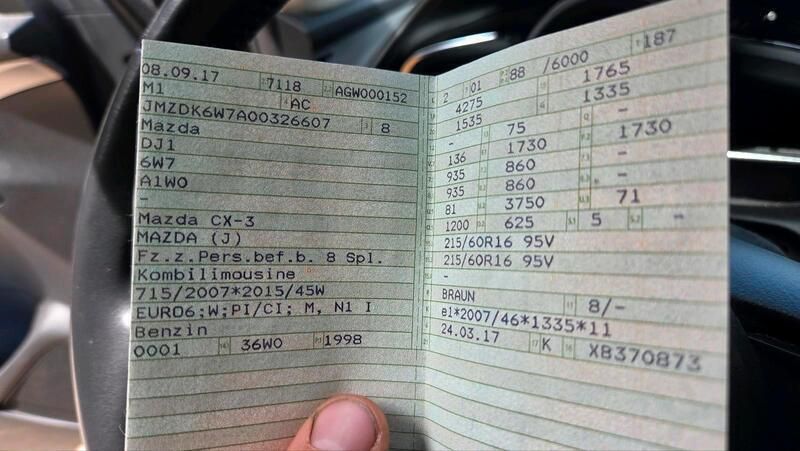 08.09.17 7118 AGW000152
M1 AC
JMZDK6W7A00326607 8
Mazda
DJ1
6W7
A1WO
-
Mazda CX-3
MAZDA (J)
Fz.z.Pers.bef.b. 8 Spl.
Kombilimousine
715/2007*2015/45W
EURO6;W;PI/CI; M, N1 I
Benzin
0001 36WO 1998
2 01 88 /6000 187
4275 1765
1535 1335
- 75 -
136 1730 1730
935 860 -
935 860 -
81 3750 71
1200 625 5 -
215/60R16 95V
215/60R16 95V
-
BRAUN 8/-
e1*2007/46*1335*11
24.03.17 K XB370873